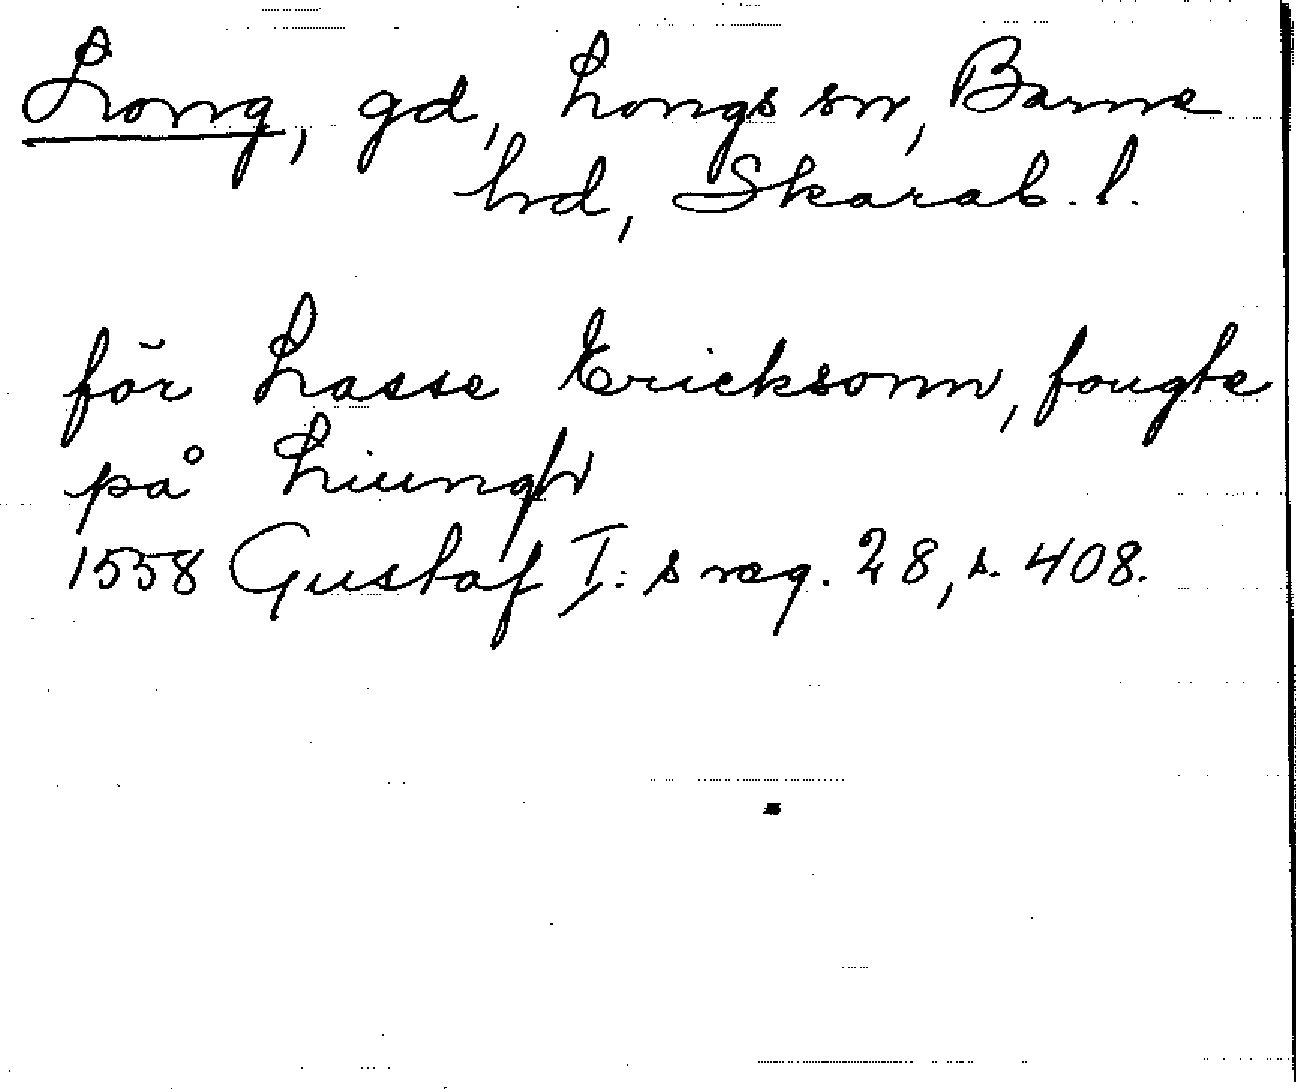 Long, gd, Longs sn, Barne
hd, Skarab. l.
för Lasse Ericksonn, fougte
på Liungh
1558 Gustaf I:s reg. 28, s. 408.